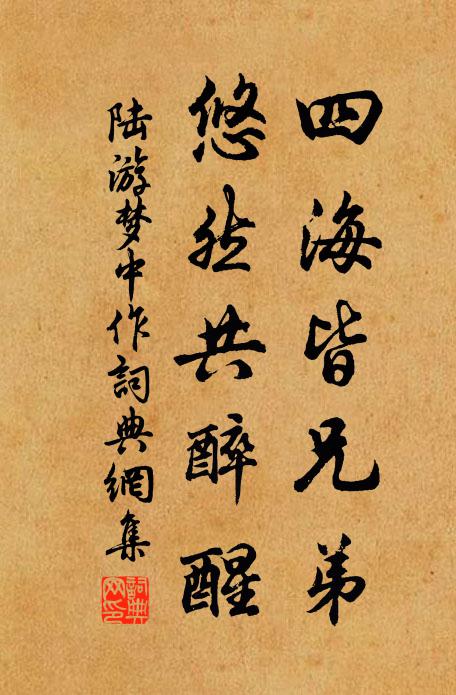 四海皆兄弟
悠然共醉醒
陆游梦中作詞典網集
詞典网印